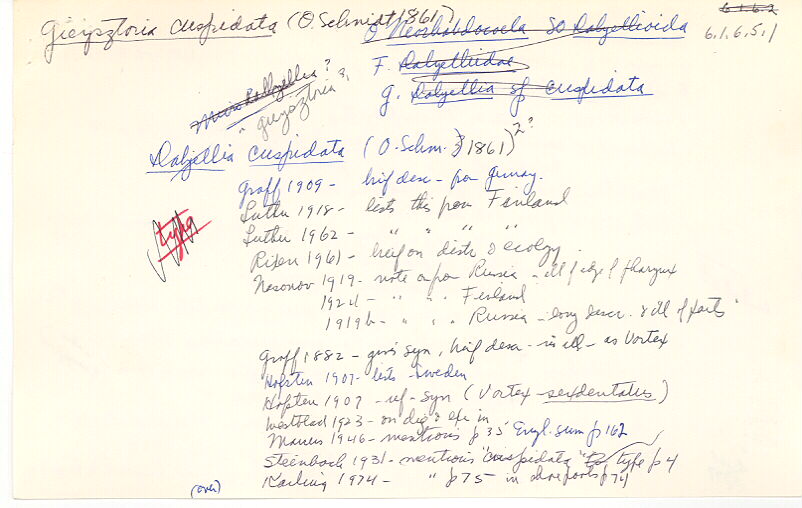 Gieysztoria cuspidata (O. Schmidt, 1861)
O Neorhabdocoela SO Dalyellioida
6.1.6.2
6.1.6.5.1
F. Dalyelliidae
g. Dalyellia sp cuspidata
Microdalyellia?
" gieysztoria?,
Dalyellia cuspidata (O. Schm. 1861) 2?
Graff 1909 - brief desc - from Germay.
Luther 1918 - lists this from Finland
Luther 1962 - " " " "
Rixen 1961 - brief on distr & ecology.
Nasonov 1919 - note on from Russia - ill of edge of pharynx
1924 - " " Finland
1919b - " " Russia - long descr. & ill of parts
typed
Graff 1882 - gives syn, brief desc - ill - as Vortex
Hofsten 1907 - lists - Sweden
Hofsten 1907 - ref - syn (Vortex sexdentatus)
Westblad 1923 - on dig & exc in
Marcus 1946 - mentions p 35 Engl. sum p 162
Steinbock 1931 - mentions "cuspidata" type p 4
Karling 1974 - " p 75 in
(over)